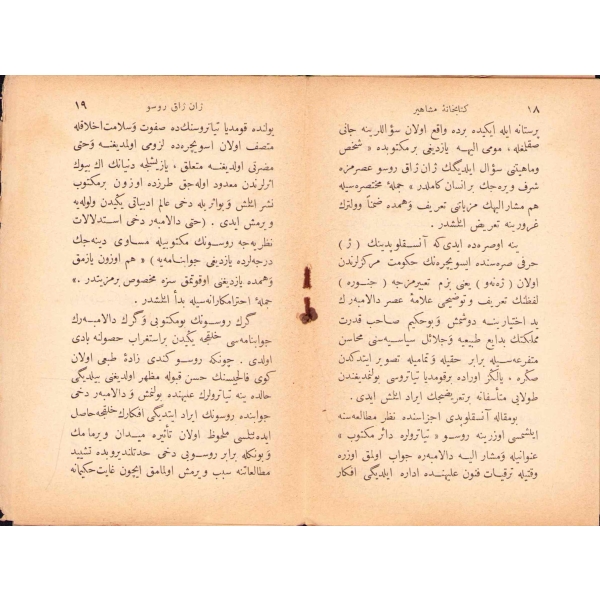 ١٨ کتابخانهٔ مشاهیر
پرستانه ایله ایکیده برده واقع اولان سؤاللرینه جانی
صقلمغله، مومی الیهه یازدیغی بر مکتوبده « شخص
وماهیتنی سؤال ایلدیکك ژان ژاق روسو عصرمزه
شرف ویره‌جك بر انسان کاملدر » جملهٔ مختصره‌سیله
هم مشار الیهك مزیاتنی تعریف وهمده ضمناً وولترك
غرورینه تعریض ایتمشدر.
ینه اوصره‌ده ایدی که آنسقلوپدینك ( ژ )
حرفی صره‌سنده ایسویچره‌نك حکومت مرکزلرندن
اولان ( ژنه‌و ) یعنی بزم تعبیرمزجه ( جنوره )
لفظنك تعریف وتوضیحی علامهٔ عصر دالامبه‌رك
ید اختیارینه دوشمش وبوحکیم صاحب قدرت
مملکتك بدایع طبیعیه وجلائل سیاسیه‌سنی محاسن
متفرعه‌سیله برابر حقیله وتمامیله تصویر ایتدکدن
صکره ، یالکز اوراده بر قومدیا تیاتروسی بولنمدیغندن
طولایی متأسفانه بر تعریضجك ایراد ایتمش ایدی .
بومقاله آنسقلوپدی اجزاسنده نظر مطالعه‌سنه
ایلشمسی اوزرینه روسو « تیاترولره دائر مکتوب »
عنوانیله ومشار الیه دالامبه‌ره جواب اولمق اوزره
وقتیله ترقیات فنون علیهنده اداره ایلدیکی افکار
ژان ژاق روسو ١٩
یولنده قومدیا تیاتروسنك‌ده صفوت وسلامت اخلاقله
متصف اولان اسویچره‌ده لزومی اولمدیغنه وحتی
مضرتی اولدیغنه متعلق ، یازیلشجه دنیانك اك بیوك
اثرلرندن معدود اوله‌جق طرزده اوزون بر مکتوب
نشر ایتمش وبو اثرله دخی عالم ادبیاتی یکیدن ولوله‌یه
ویرمش ایدی . ( حتی دالامبه‌ر دخی استدلالات
نظریه‌جه روسونك مکتوبیله مساوی دینه‌جك
درجه‌لرده یازدیغی جوابنامه‌یی ) « هم اوزون یازمق
وهمده یازدیغنی اوقوتمق سزه مخصوص بر مزیتدر . »
جملهٔ احترامکارانه‌سیله بدأ ایتمشدر .
گرك روسونك بومکتوبی وگرك دالامبه‌رك
جوابنامه‌سی خلقجه یکیدن بر استغراب حصولنه بادی
اولدی . چونکه روسو کندی زادهٔ طبعی اولان
کوی فالجیسنك حسن قبوله مظهر اولدیغنی بیلدیکی
حالده ینه تیاترولرك علیهنده بولنمش ودالامبه‌ر دخی
جوابنده روسونك ایراد ایتدیکی افکارك خلقجه حاصل
ایده‌بیلسی ملحوظ اولان تأثیره میدان ویرمامك
وبونکله برابر روسویی دخی حدتلندیروبده تشیید
مطالعاتنه سبب ویرمش اولمامق ایچون غایت حکیمانه